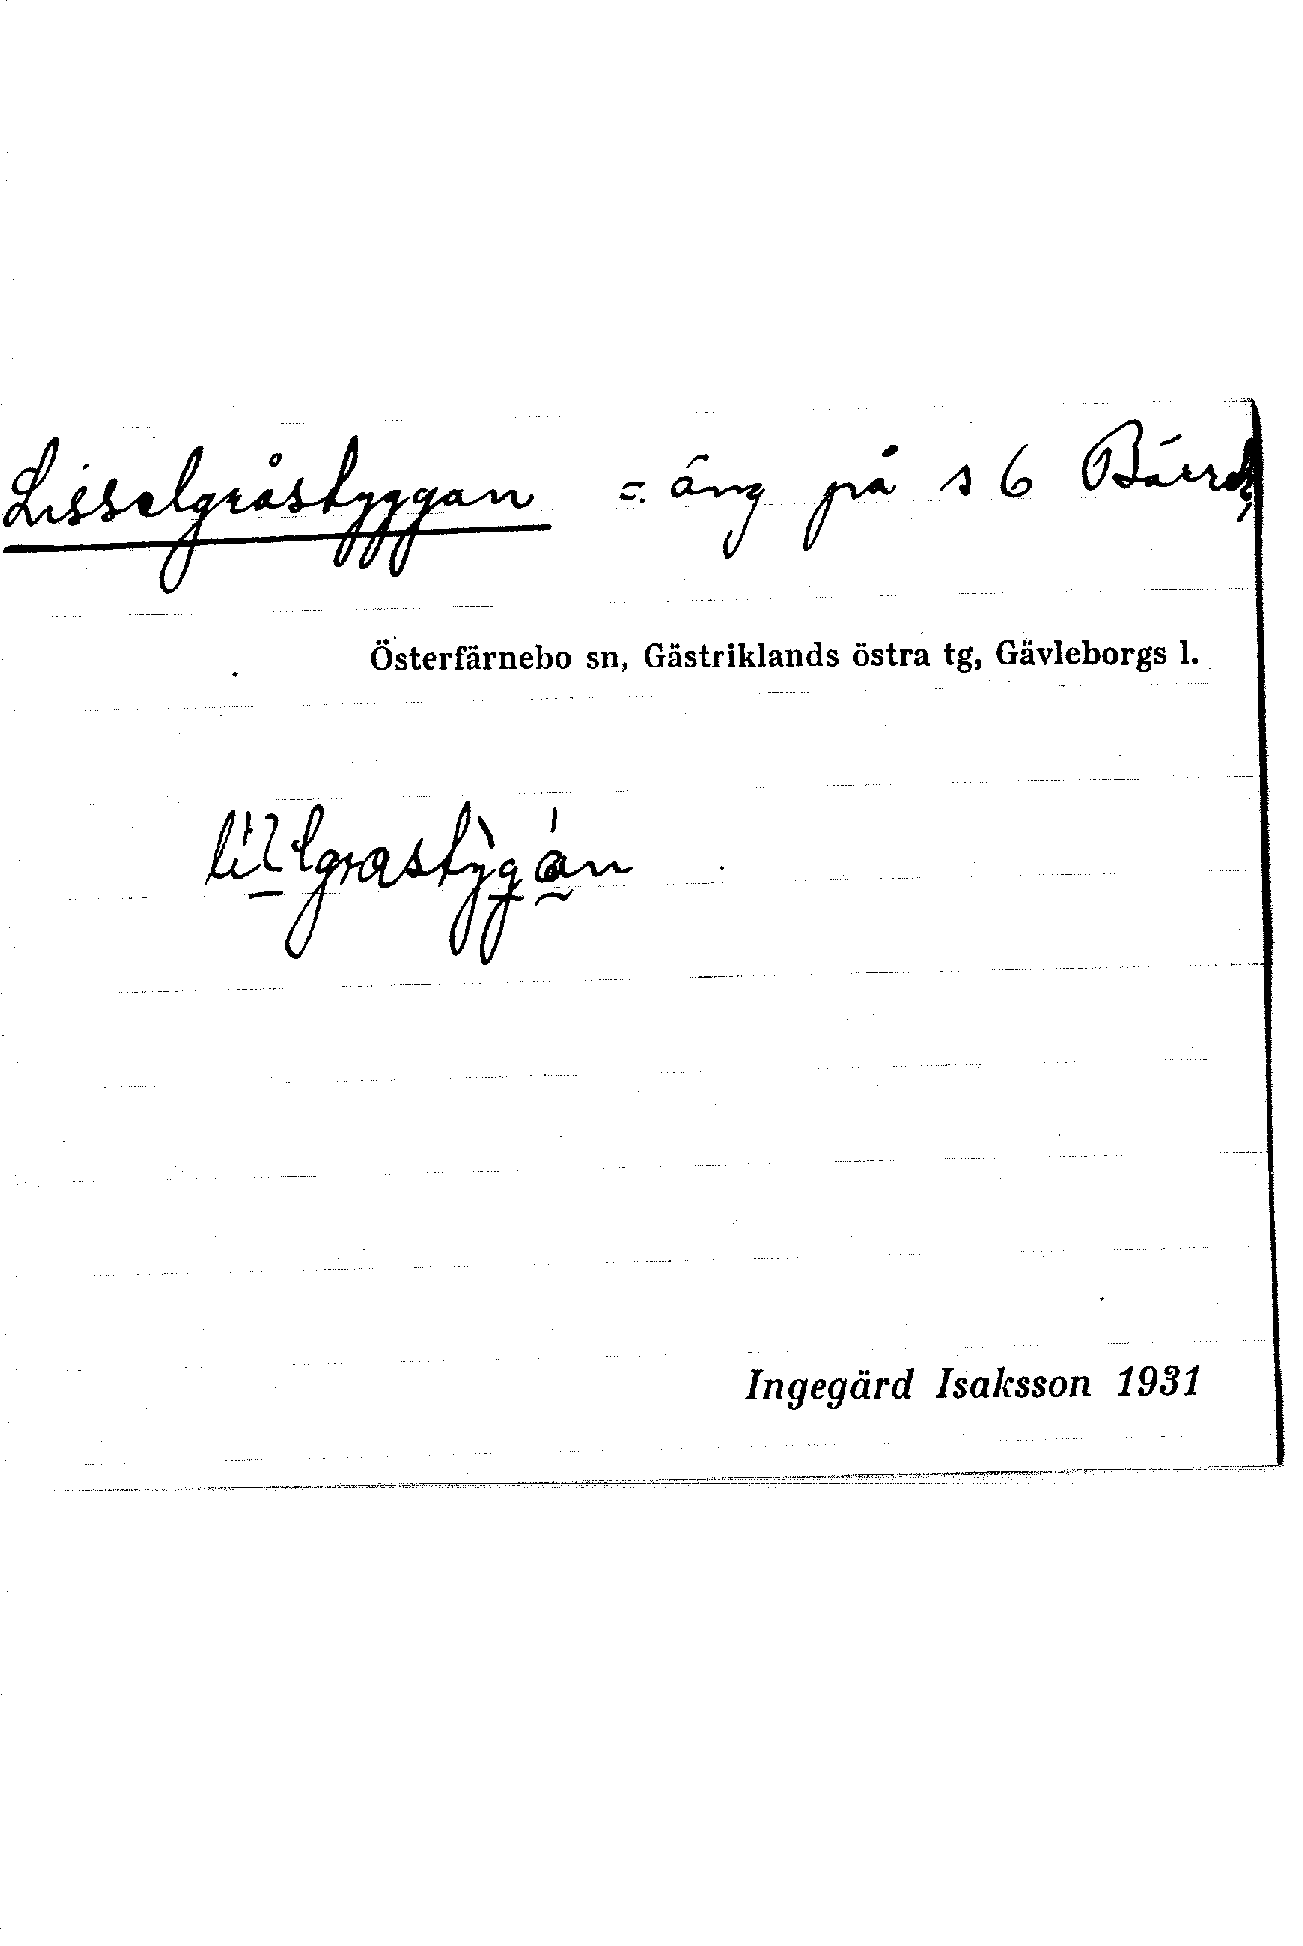 Lisselgråstyggan = äng på s 6
Österfärnebo sn, Gästriklands östra tg, Gävleborgs l.
Ingegärd Isaksson 1931